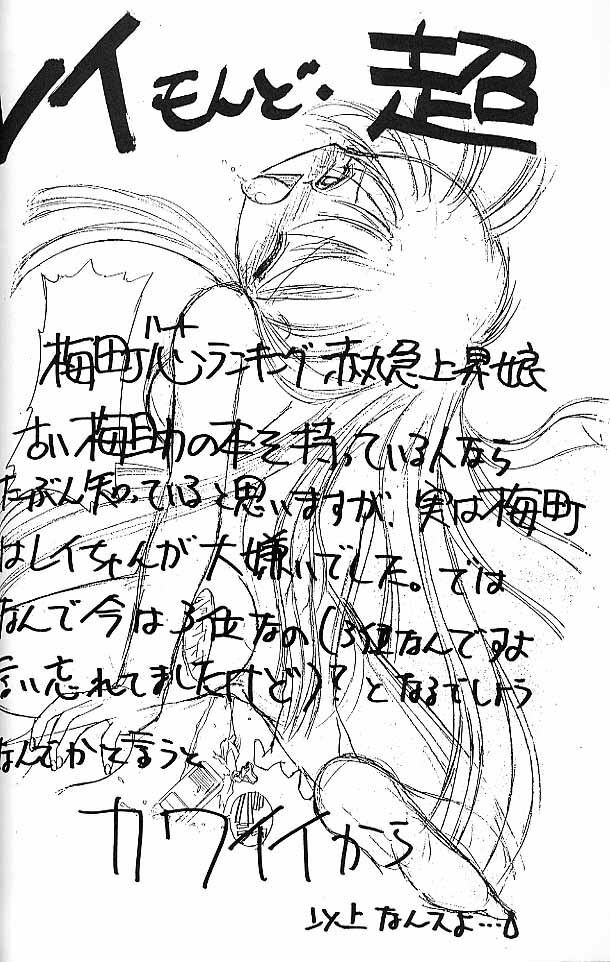 レイモンド・超
梅町心ランキング赤丸急上昇娘
ハート
古い梅町の本を持っている人なら
たぶん知っていると思いますが、実は梅町
はレイちゃんが大嫌いでした。では
なんで今は3位なの(3位なんですよ
言い忘れてましたけど)?となるでしょう
なんでかと言うと
カワイイから
以上なんスよ…。